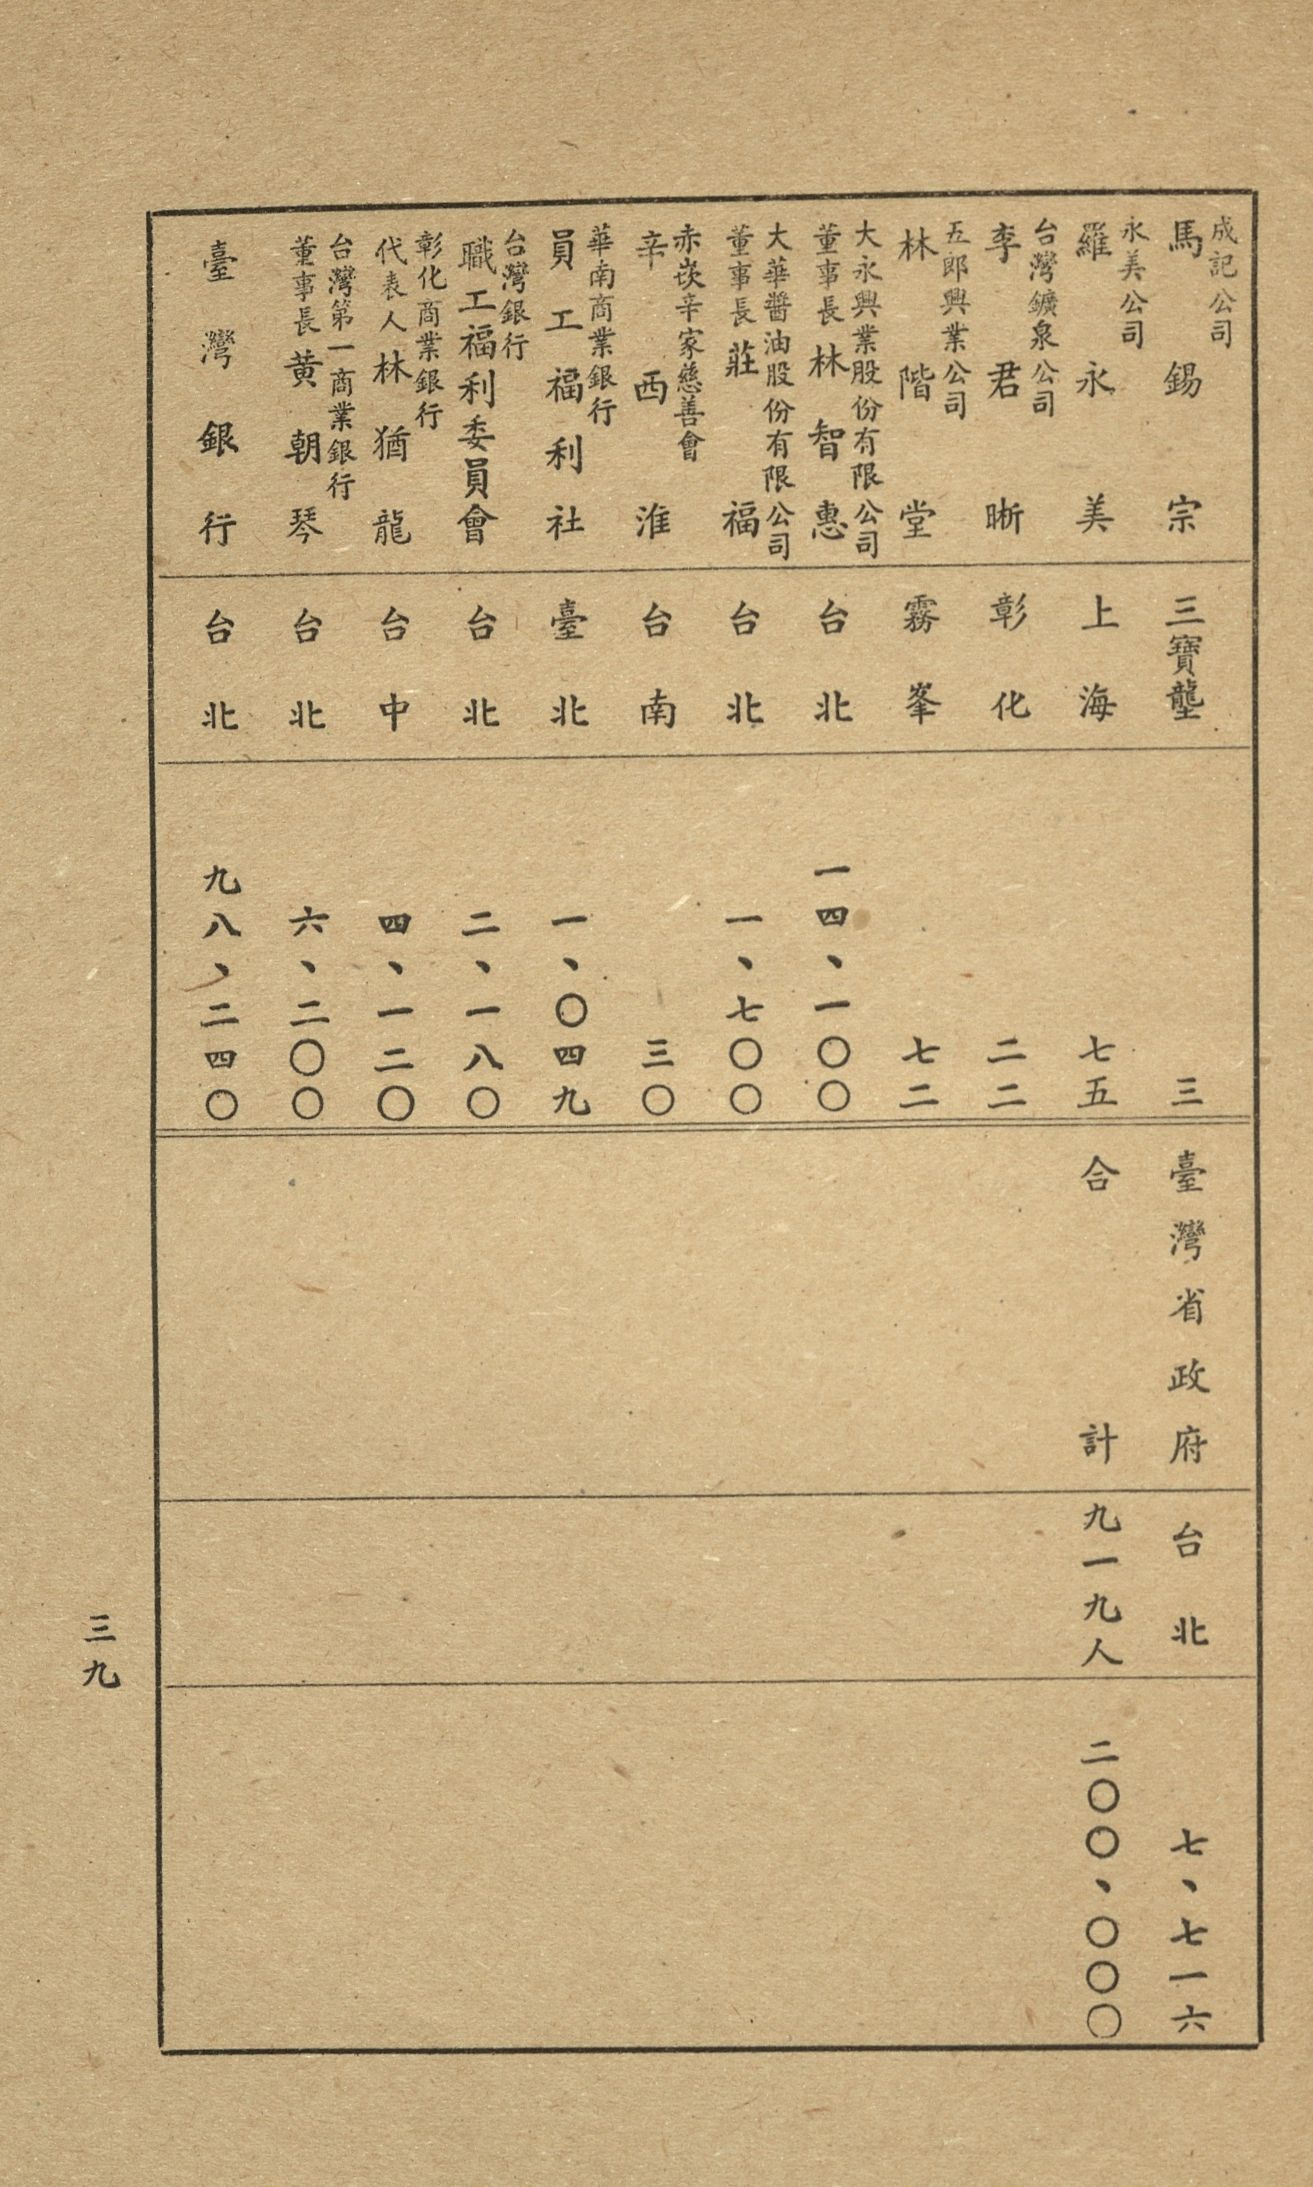 成記公司
馬錫宗 三寶壟 三
永美公司
羅永美 上海 七五
台灣鑛泉公司
李君晰 彰化 二二
五郎興業公司
林階堂 霧峯 七二
大永興業股份有限公司
董事長林智惠 台北 一四、一〇〇
大華醬油股份有限公司
董事長莊福 台北 一、七〇〇
赤崁辛家慈善會
辛西淮 台南 三〇
華南商業銀行
員工福利社 臺北 一、〇四九
台灣銀行
職工福利委員會 台北 二、一八〇
彰化商業銀行
代表人林猶龍 台中 四、一二〇
台灣第一商業銀行
董事長黃朝琴 台北 六、二〇〇
臺灣銀行 台北 九八、二四〇
臺灣省政府 台北 七、七一六
合計 九一九人 二〇〇、〇〇〇
三九